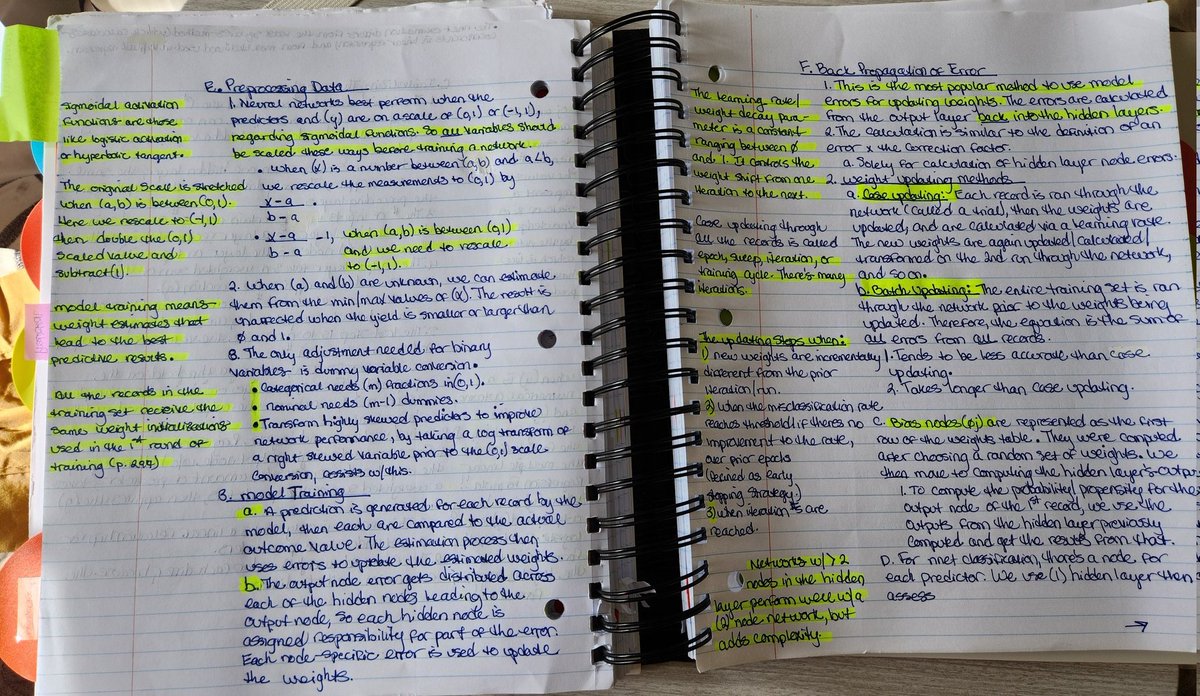 E. Preprocessing Data
1. Neural networks best perform when the
predictors and (y) are on a scale of (0,1) or (-1,1),
regarding sigmoidal functions. So all variables should
be scaled these ways before training a network.
• when (x) is a number between (a,b) and a<b,
we rescale the measurements to (0,1) by
x-a
b-a
• x-a -1, when (a,b) is between (0,1)
b-a and we need to rescale
to (-1,1).
2. When (a) and (b) are unknown, we can estimate
them from the min/max values of (x). The result is
unaffected when the yield is smaller or larger than
0 and 1.
3. The only adjustment needed for binary
variables is dummy variable conversion.
• Categorical needs (m) fractions in (0,1).
• nominal needs (m-1) dummies.
• Transform highly skewed predictors to improve
network performance, by taking a log transform of
a right skewed variable prior to the (0,1) scale
conversion, assists w/this.
B. Model Training
a. A prediction is generated for each record by the
model, then each are compared to the actual
outcome value. The estimation process then
uses errors to update the estimated weights.
b. The output node error gets distributed across
each of the hidden nodes leading to the
output node, so each hidden node is
assigned responsibility for part of the error.
Each node-specific error is used to update
the weights.
sigmoidal activation
functions are those
like logistic activation
or hyperbolic tangent.
The original scale is stretched
when (a,b) is between (0,1).
Here we rescale to (-1,1)
then double the (0,1)
scaled value and
subtract (1).
model training means
weight estimates that
lead to the best
predictive results.
All the records in the
training set receive the
same weight initializations
used in the 1st round of
training (p. 297)
F. Back Propagation of Error
1. This is the most popular method to use model
errors for updating weights. The errors are calculated
from the output layer back into the hidden layers.
2. The calculation is similar to the definition of an
error x the correction factor.
a. Solely for calculation of hidden layer node errors.
2. Weight updating methods
a. Case updating: Each record is ran through the
network (called a trial), then the weights are
updated, and are calculated via a learning rate.
The new weights are again updated/calculated/
transformed on the 2nd run through the network,
and so on.
b. Batch Updating: The entire training set is ran
through the network prior to the weights being
updated. Therefore, the equation is the sum of
all errors from all records.
1. Tends to be less accurate than case
updating.
2. Takes longer than case updating.
C. Bias nodes (θj) are represented as the first
row of the weights table. They were computed
after choosing a random set of weights. We
then move to computing the hidden layer's output
1. To compute the probability/propensity for the
output node of the 1st record, we use the
outputs from the hidden layer previously
computed and get the results from that.
D. For nnet classification, there's a node for
each predictor. We use (1) hidden layer then
assess
→
The learning rate/
weight decay para-
meter is a constant
ranging between 0
and 1. It controls the
weight shift from one
iteration to the next.
Case updating through
all the records is called
epoch, sweep, iteration, or
training cycle. There's many
iterations.
The updating stops when:
1) new weights are incrementally
different from the prior
iteration/run.
2) when the misclassification rate
reaches threshold if there's no
improvement to the rate,
over prior epochs
(defined as early
stopping strategy.)
3) when iteration #s are
reached.
Networks w/>2
nodes in the hidden
layer perform well w/a
(2) node network, but
adds complexity.